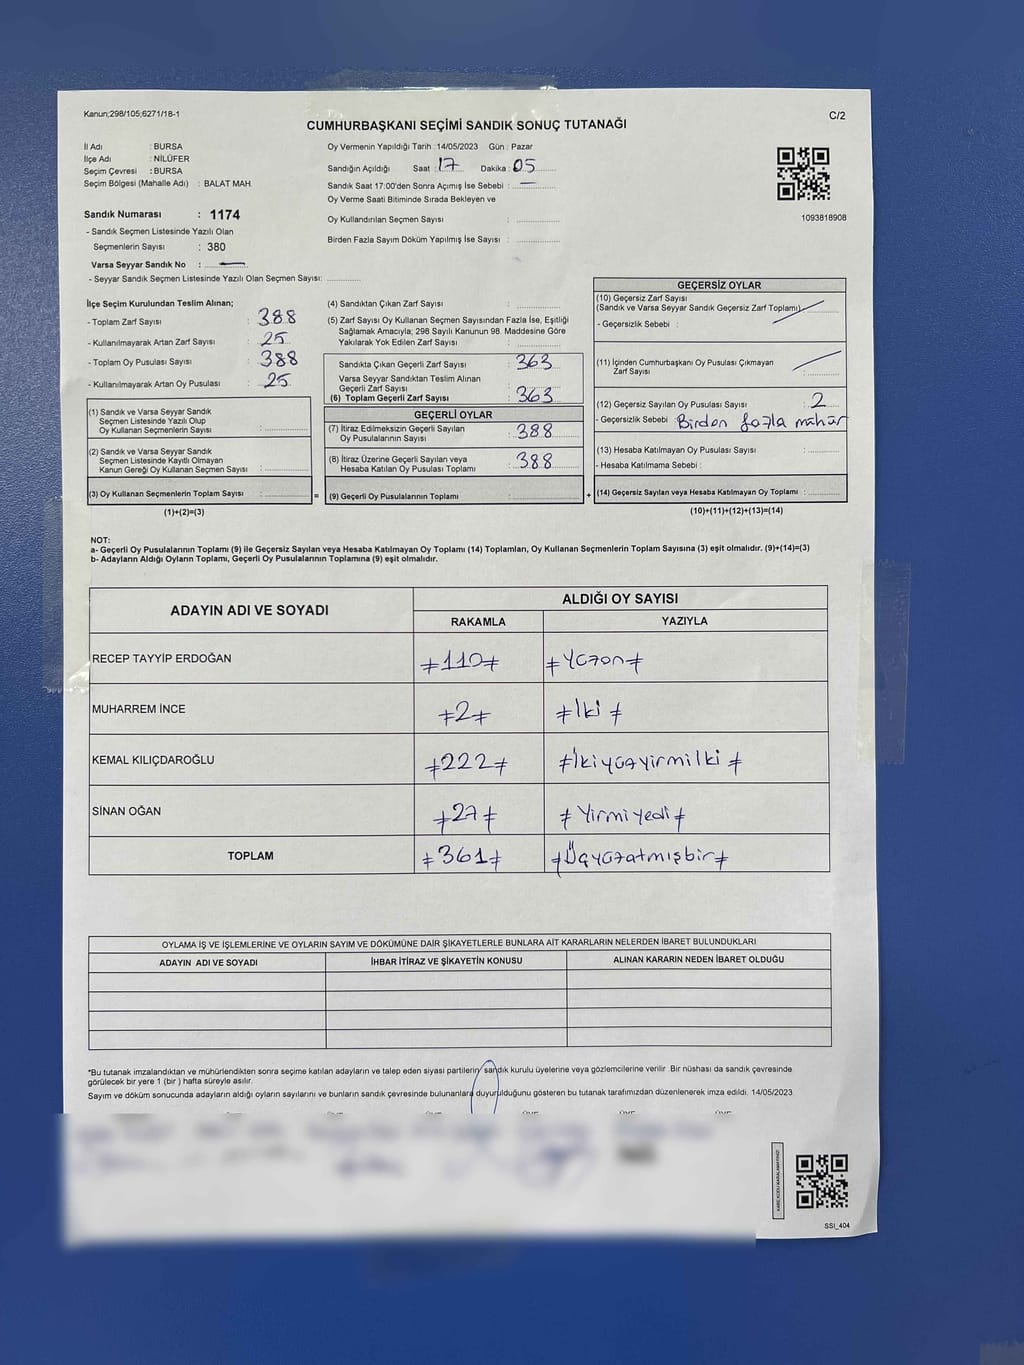 Kanun;298/105;6271/18-1
C/2
CUMHURBAŞKANI SEÇİMİ SANDIK SONUÇ TUTANAĞI
İl Adı : BURSA
İlçe Adı : NİLÜFER
Seçim Çevresi : BURSA
Seçim Bölgesi (Mahalle Adı) : BALAT MAH.
Sandık Numarası : 1174
- Sandık Seçmen Listesinde Yazılı Olan
Seçmenlerin Sayısı : 380
Varsa Seyyar Sandık No : —
- Seyyar Sandık Seçmen Listesinde Yazılı Olan Seçmen Sayısı: ............
Oy Vermenin Yapıldığı Tarih : 14/05/2023 Gün : Pazar
Sandığın Açıldığı Saat : 17 Dakika : 05
Sandık Saat 17:00'den Sonra Açımış İse Sebebi : —
Oy Verme Saati Bitiminde Sırada Bekleyen ve
Oy Kullandırılan Seçmen Sayısı :
Birden Fazla Sayım Döküm Yapılmış İse Sayısı :
1093818908
İlçe Seçim Kurulundan Teslim Alınan;
- Toplam Zarf Sayısı : 388
- Kullanılmayarak Artan Zarf Sayısı : 25
- Toplam Oy Pusulası Sayısı : 388
- Kullanılmayarak Artan Oy Pusulası : 25
(1) Sandık ve Varsa Seyyar Sandık
Seçmen Listesinde Yazılı Olup
Oy Kullanan Seçmenlerin Sayısı :
(2) Sandık ve Varsa Seyyar Sandık
Seçmen Listesinde Kayıtlı Olmayan
Kanun Gereği Oy Kullanan Seçmen Sayısı :
(3) Oy Kullanan Seçmenlerin Toplam Sayısı :
=
(1)+(2)=(3)
(4) Sandıktan Çıkan Zarf Sayısı :
(5) Zarf Sayısı Oy Kullanan Seçmen Sayısından Fazla İse, Eşitliği
Sağlamak Amacıyla; 298 Sayılı Kanunun 98. Maddesine Göre
Yakılarak Yok Edilen Zarf Sayısı :
Sandıkta Çıkan Geçerli Zarf Sayısı : 363
Varsa Seyyar Sandıktan Teslim Alınan
Geçerli Zarf Sayısı :
(6) Toplam Geçerli Zarf Sayısı : 363
GEÇERLİ OYLAR
(7) İtiraz Edilmeksizin Geçerli Sayılan
Oy Pusulalarının Sayısı : 388
(8) İtiraz Üzerine Geçerli Sayılan veya
Hesaba Katılan Oy Pusulası Toplamı : 388
(9) Geçerli Oy Pusulalarının Toplamı :
+
GEÇERSİZ OYLAR
(10) Geçersiz Zarf Sayısı
(Sandık ve Varsa Seyyar Sandık Geçersiz Zarf Toplamı) :
- Geçersizlik Sebebi :
(11) İçinden Cumhurbaşkanı Oy Pusulası Çıkmayan
Zarf Sayısı :
(12) Geçersiz Sayılan Oy Pusulası Sayısı : 2
- Geçersizlik Sebebi : Birden fazla mühür
(13) Hesaba Katılmayan Oy Pusulası Sayısı :
- Hesaba Katılmama Sebebi :
(14) Geçersiz Sayılan veya Hesaba Katılmayan Oy Toplamı :
(10)+(11)+(12)+(13)=(14)
NOT:
a- Geçerli Oy Pusulalarının Toplamı (9) ile Geçersiz Sayılan veya Hesaba Katılmayan Oy Toplamı (14) Toplamları, Oy Kullanan Seçmenlerin Toplam Sayısına (3) eşit olmalıdır. (9)+(14)=(3)
b- Adayların Aldığı Oyların Toplamı, Geçerli Oy Pusulalarının Toplamına (9) eşit olmalıdır.
ADAYIN ADI VE SOYADI ALDIĞI OY SAYISI
RAKAMLA YAZIYLA
RECEP TAYYİP ERDOĞAN ≠110≠ ≠Yüzon≠
MUHARREM İNCE ≠2≠ ≠İki≠
KEMAL KILIÇDAROĞLU ≠222≠ ≠İkiyüzyirmiİki≠
SİNAN OĞAN ≠27≠ ≠Yirmiyedi≠
TOPLAM ≠361≠ ≠Üçyüzatmışbir≠
OYLAMA İŞ VE İŞLEMLERİNE VE OYLARIN SAYIM VE DÖKÜMÜNE DAİR ŞİKAYETLERLE BUNLARA AİT KARARLARIN NELERDEN İBARET BULUNDUKLARI
ADAYIN ADI VE SOYADI İHBAR İTİRAZ VE ŞİKAYETİN KONUSU ALINAN KARARIN NEDEN İBARET OLDUĞU
*Bu tutanak imzalandıktan ve mühürlendikten sonra seçime katılan adayların ve talep eden siyasi partilerin sandık kurulu üyelerine veya gözlemcilerine verilir. Bir nüshası da sandık çevresinde
görülecek bir yere 1 (bir ) hafta süreyle asılır.
Sayım ve döküm sonucunda adayların aldığı oyların sayılarını ve bunların sandık çevresinde bulunanlara duyurulduğunu gösteren bu tutanak tarafımızdan düzenlenerek imza edildi. 14/05/2023
SSI_404